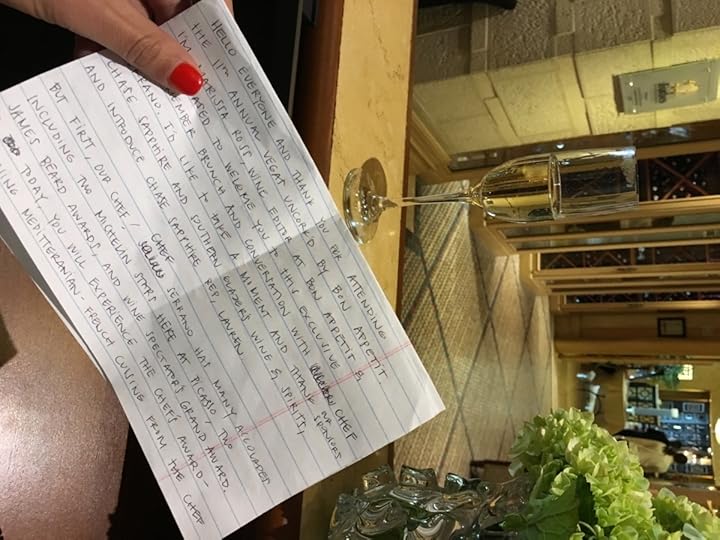 HELLO EVERYONE AND THANK YOU FOR ATTENDING
THE 11TH ANNUAL VEGAS UNCORK'D BY BON APPETIT
I'M MARISSA ROSS WINE EDITOR AT BON APPETIT &
ASED TO WELCOME YOU TO THIS EXCLUSIVE
EMBER BRUNCH AND CONVERSATION WITH CHEF
RRANO. I'D LIKE TO TAKE A MOMENT AND THANK OUR SPONSORS
CHASE SAPPHIRE AND SOUTHERN GLAZERS WINE & SPIRITS,
AND INTRODUCE CHASE SAPPHIRE REP, LAUREN
BUT FIRST, OUR CHEF / CHEF SERRANO HAS MANY ACCOLADES
INCLUDING TWO MICHELIN STARS HERE AT PICASSO TWO
JAMES BEARD AWARDS, AND WINE SPECTATORS GRAND AWARD.
TODAY, YOU WILL EXPERIENCE THE CHEF'S AWARD-
ING MEDITERANIAN-FRENCH CUISINE FROM THE CHEF